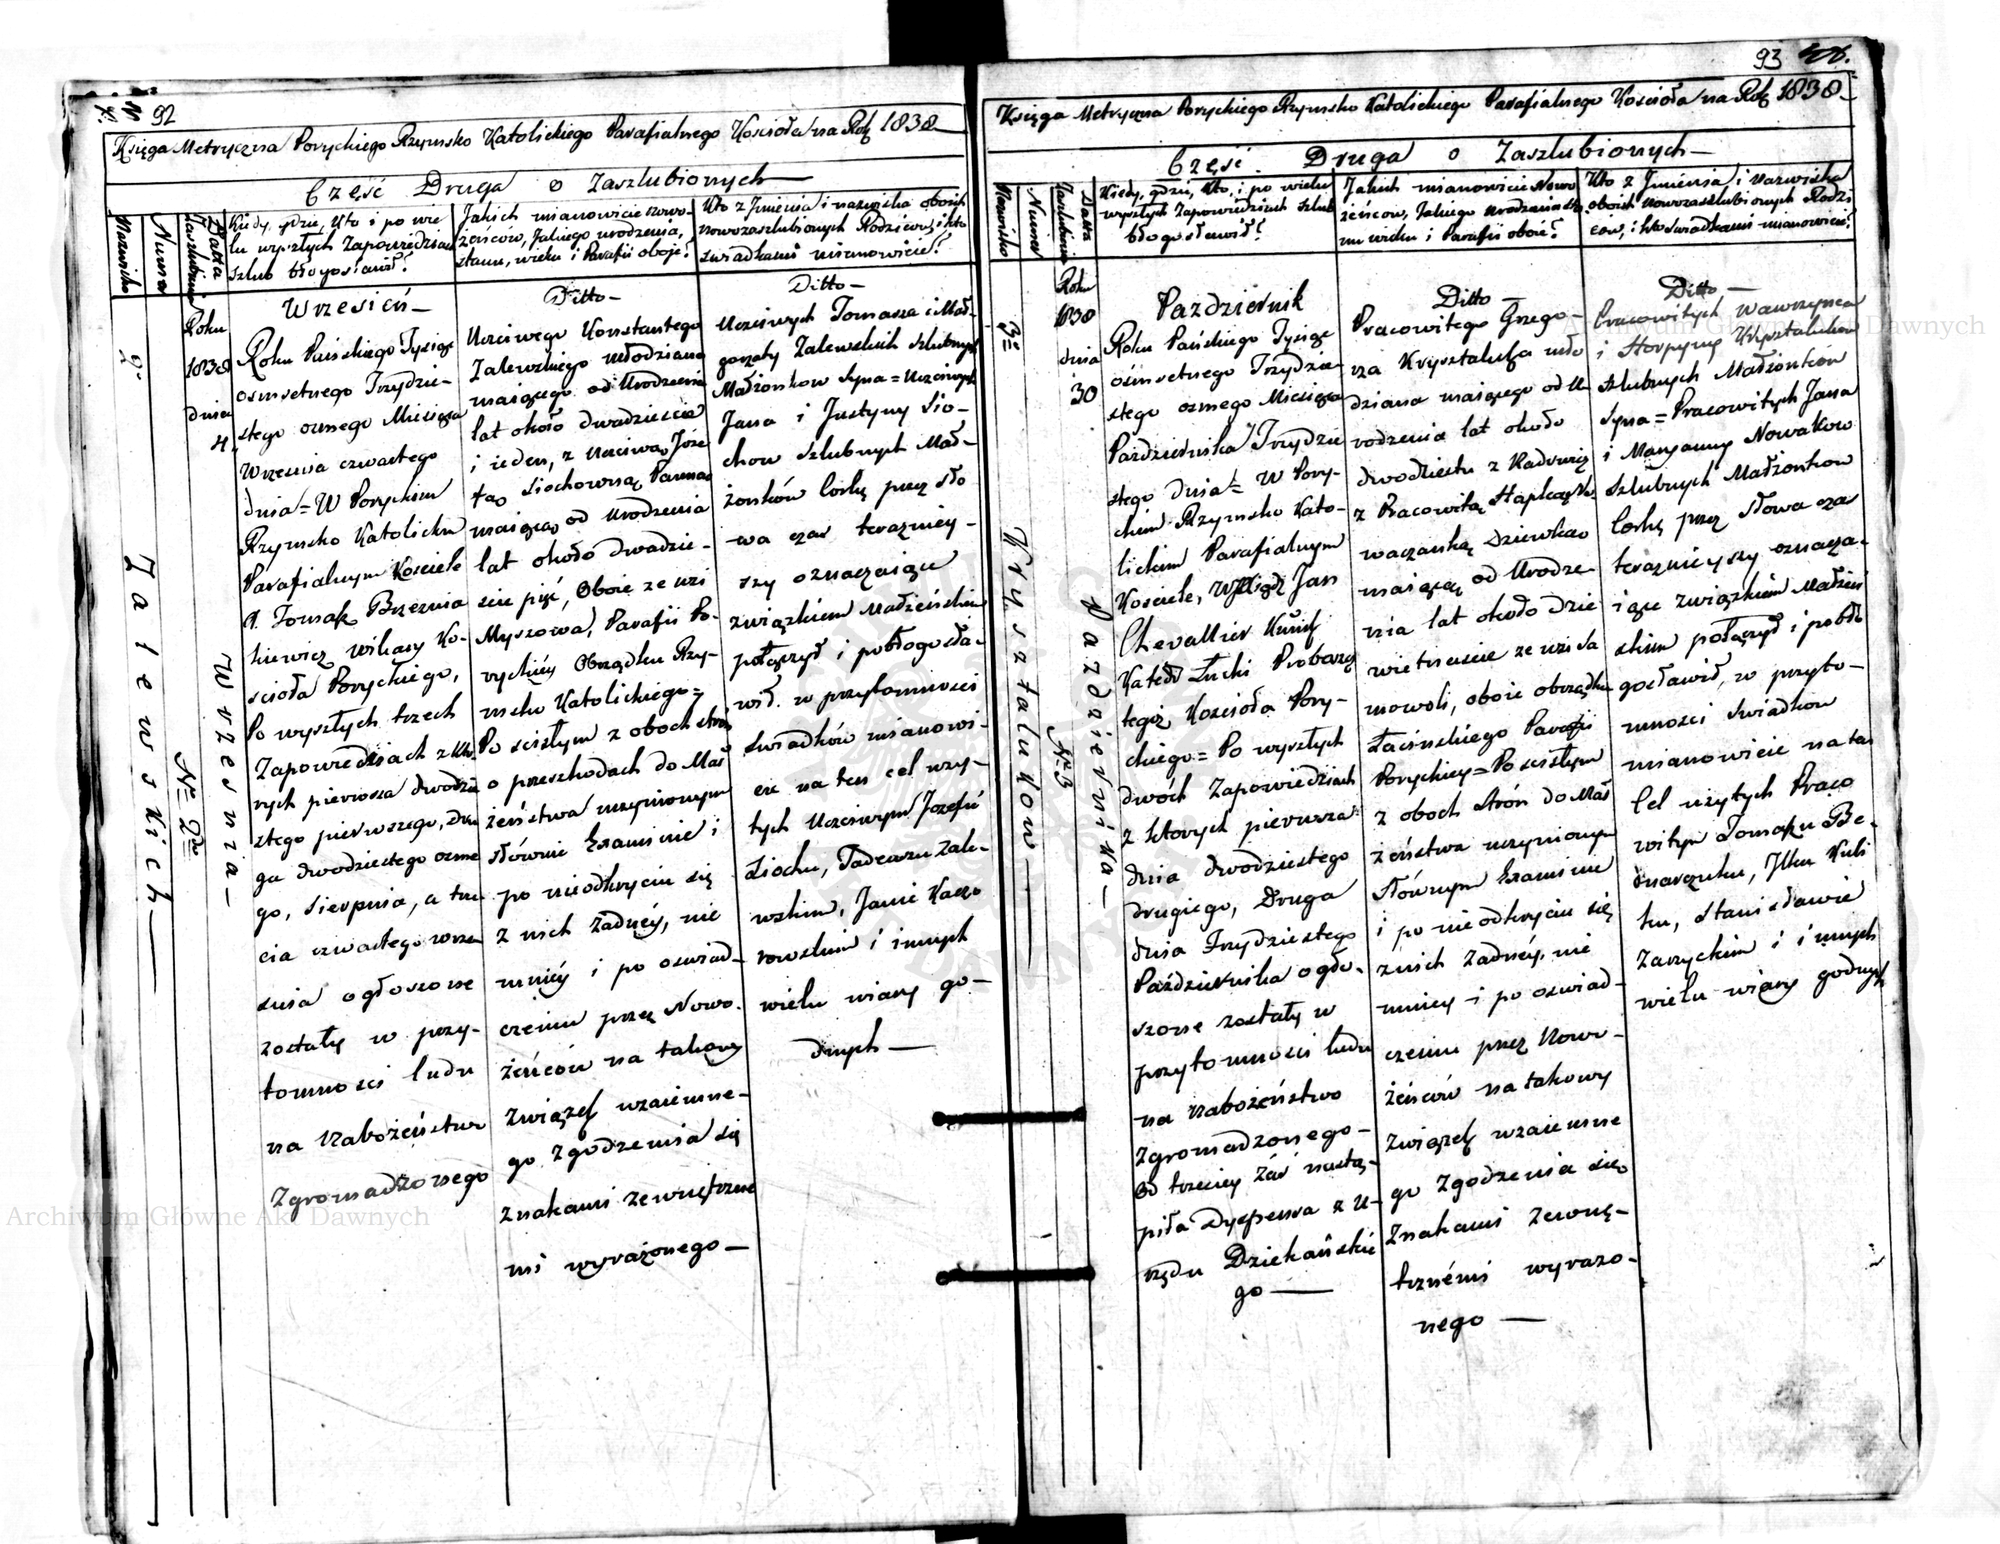 92
Księga Metryczna Poryckiego Rzymsko Katolickiego Parafialnego Kościoła na Rok 1838
Część Druga o Zaszlubionych
Nazwisko
Numer
Datta Zaszlubienia
Kiedy, gdzie, kto i po wie
lu wyszłych Zapowiedziach
szlub błogosławił?
Jakich mianowicie nowo-
żeńców, Jakiego urodzenia,
stanu, wieku i Parafii oboje?
Kto z Jmienia i nazwiska oboich
nowozaszlubionych Rodziców, i kto
swiadkami mianowicie?
Zalewskich
Nr 2do
Września
Roku
1838
dnia
4
Wrzesień
Roku Pańskiego Tysiąc
osmsetnego Trzydzie-
stego osmego Miesiąca
Wrzesnia czwartego
dnia = W Poryckim
Rzymsko Katolickim
Parafialnym Kosciele
X. Tomasz Brzeznia
kiewicz Wikary Ko-
scioła Poryckiego,
Po wyszłych trzech
Zapowiedziach z któ
rych pierwsza dwodzie
stego pierwszego, Dru
ga dwodziestego osme
go, Sierpnia, a trze
cia czwartego wrze
snia ogłoszone
zostały w przy-
tomnosci ludu
na Nabożeństwo
Zgromadzonego
Ditto
Uczciwego Konstantego
Zalewskiego młodziana
maiącego od Urodzenia
lat około dwadziescia
i ieden, z Uczciwą Józe
fą Siochowną Panną
maiącą od Urodzenia
lat około dwadzie-
scia pięć, Oboie ze wsi
Myszowa, Parafii Po-
ryckiey Obrządku Rzy-
msko Katolickiego =
Po scisłym z oboch stron
o przeszkodach do Mał
żeństwa uczynionym
słównie Examinie i
po nieodkryciu się
z nich żadney, nie
mniey i po oswiad-
czeniu przez Nowo-
żeńców na takowy
związek wzaiemne-
go zgodzenia się
znakami zewnętrzne
mi wyrażonego
Ditto
Uczciwych Tomasza i Mał-
gorzaty Zalewskich szlubnych
Małżonkow Syna = Uczciwych
Jana i Justyny Sio-
chow szlubnych Mał-
żonków Corkę przez sło
wa czas terazniey-
szy oznaczaiące
związkiem Małżeńskim
połączył i pobłogosła-
wił. w przytomnosci
swiadków mianowi-
cie na ten cel uzy-
tych Uczciwym Jozefie
Siochu, Tadeuszu Zale-
wskim, Janie Kaczo
rowskim i innych
wielu wiary go-
dnych
93
Księga Metryczna Poryckiego Rzymsko Katolickiego Parafialnego Kościoła na Rok 1838
Część Druga o Zaszlubionych
Nazwisko
Numer
Datta Zaszlubienia
Kiedy, gdzie, kto, i po wielu
wyszłych Zapowiedziach szlub
błogosławił?
Jakich mianowicie Nowo
żeńców, Jakiego urodzenia sta
nu wieku i Parafii oboie?
Kto z Jmienia i Nazwiska
oboich Nowozaszlubionych Rodzi
ców, i kto swiadkami mianowicie?
3cie
Krysztaluków
Nr 3
Pazdziernika
Roku
1838
dnia
30
Pazdziernik
Roku Pańskiego Tysiąc
osmsetnego Trzydzie
stego osmego Miesiąca
Pażdziernika Trzydzie
stego dnia = W Pory-
ckim Rzymsko Kato-
lickim Parafialnym
Kosciele, W. Xiądz Jan
Chevallier
Kated Łucki Proboszcz
tegoż Koscioła Pory-
ckiego = Po wyszłych
dwóch Zapowiedziach
z ktorych pierwsza
dnia dwodziestego
drugiego, Druga
dnia Trzydziestego
Pażdziernika ogło-
szone zostały w
przytomnosci ludu
na Nabożeństwo
Zgromadzonego
Od trzeciey Zaś nastą-
piła Dyspensa z U-
rzędu Dziekańskie
go
Ditto
Pracowitego Grzego-
rza Krysztaluka mło
dziana maiącego od U-
rodzenia lat około
dwodziestu
z Pracowitą
Dziewką
maiącą od Urodze-
nia lat około dzie
wietnascie ze wsi
oboie obrządku
Łacinskiego Parafii
Poryckiey = Po scisłym
z oboch strón do Mał
żeństwa uczynionym
słównym Examinie
i po nieodkryciu się
znich żadney, nie
mniey i po oswiad-
czeniu przez Nowo-
żeńców na takowy
związek wzaiemne
go zgodzenia się
znakami zewnę-
trznémi wyrażo-
nego
Ditto
Pracowitych Wawrzynca
i Horpyny Krysztaluków
szlubnych Małżonków
Syna = Pracowitych Jana
i Maryanny Nowakow
szlubnych Małżonkow
Corkę przez słowa czas
terazniejszy oznacza-
iące związkiem Małżeń
skim połączył i pobło
gosławił, w przyto-
mnosci swiadkow
mianowicie na ten
Cel uzytych Praco
witym Tomaszu Be-
dnarczuku,
Stanisławie
Zaryckim i innych
wielu wiary godnych
Archiwum Główne Akt Dawnych
Archiwum Główne Akt Dawnych